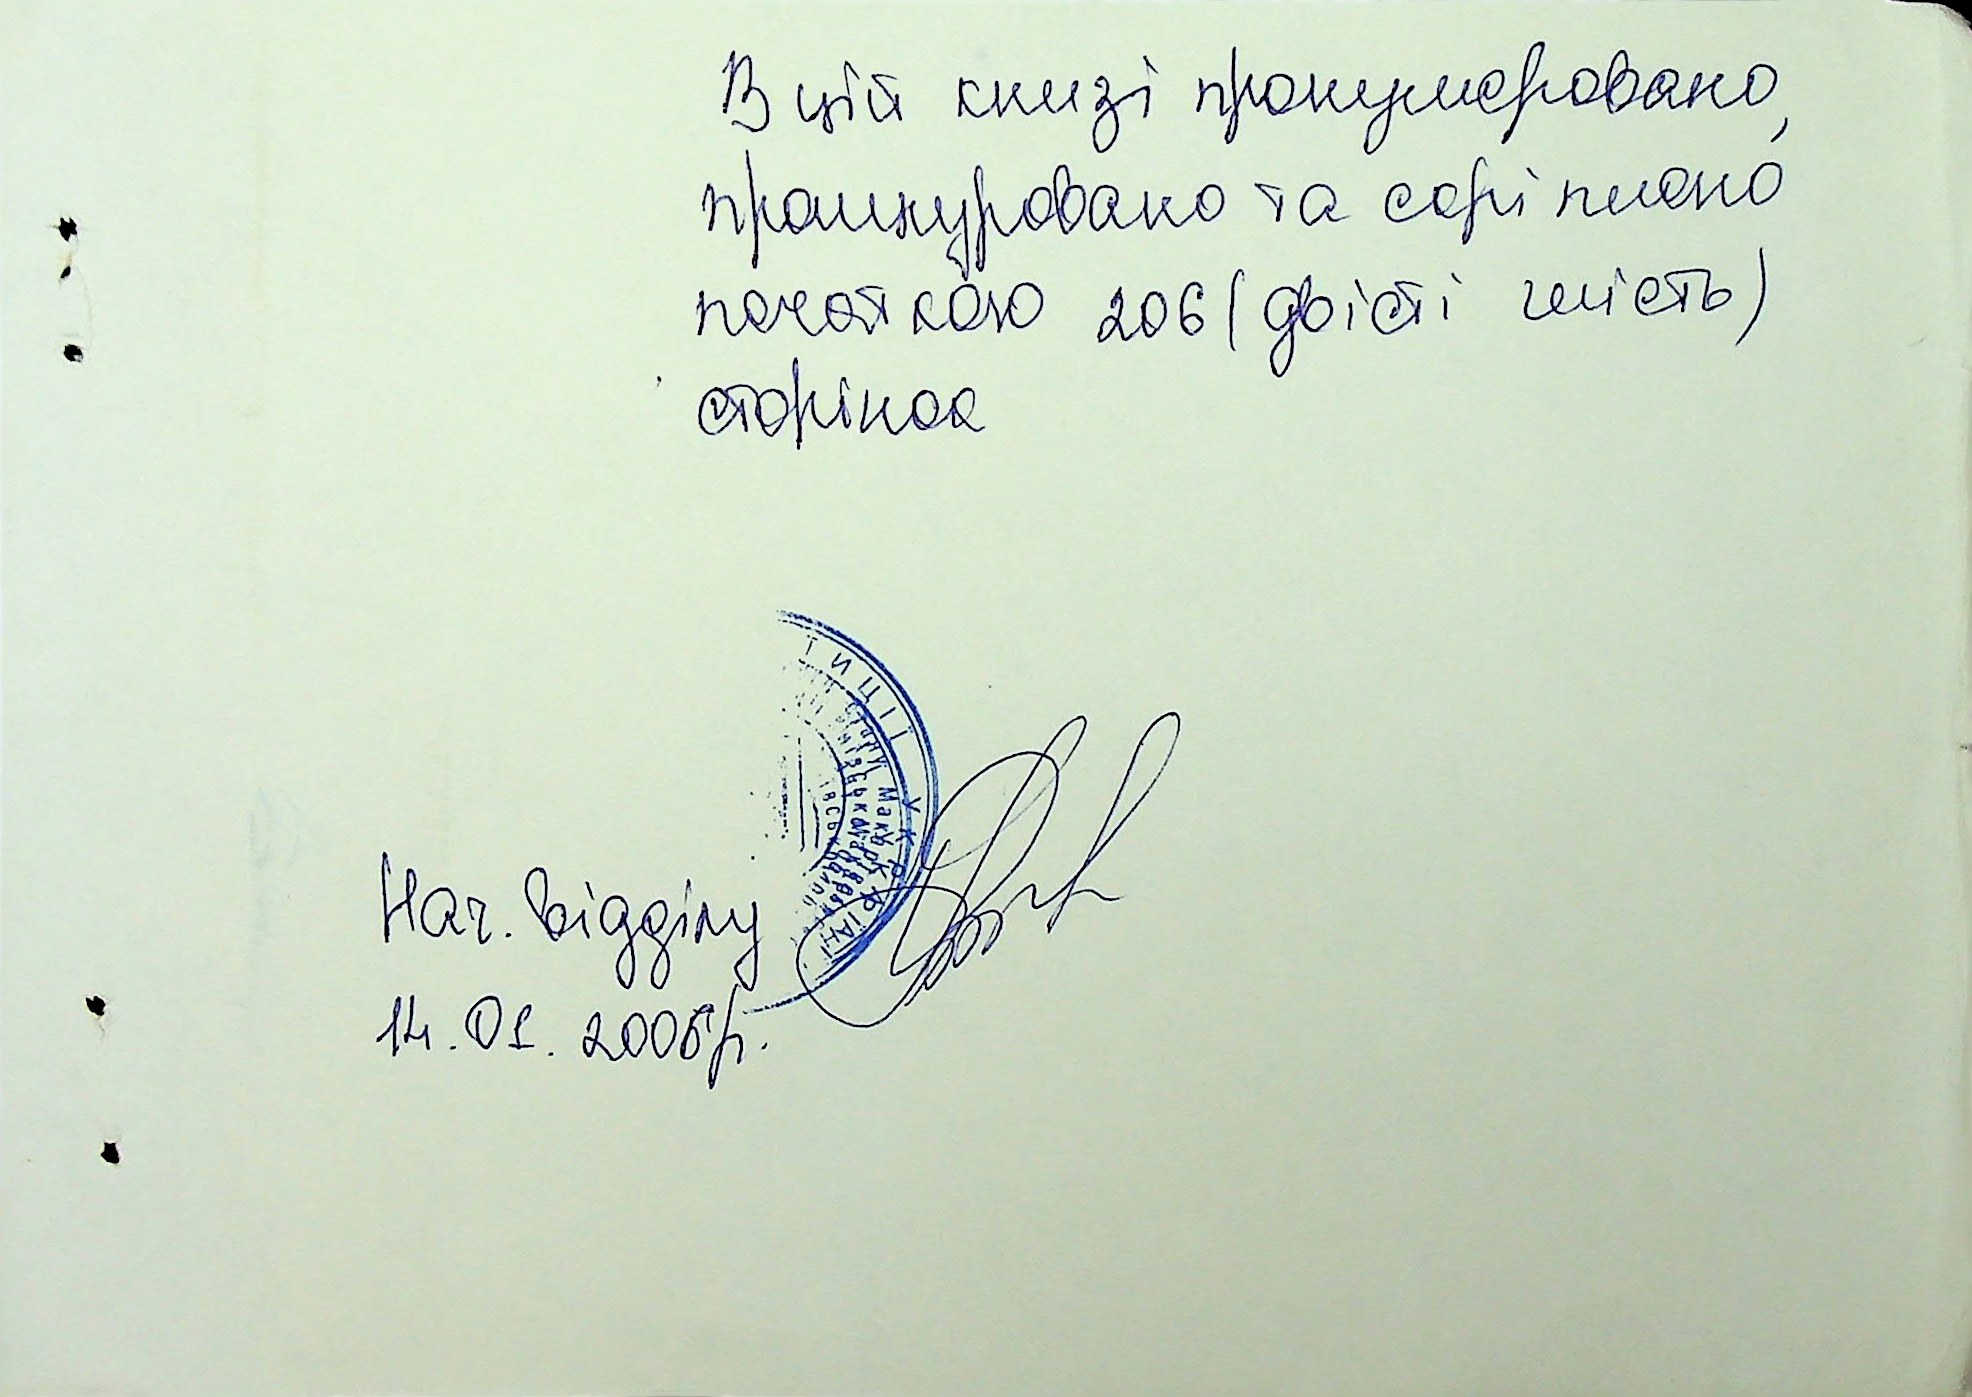 В цій книзі пронумеровано,
прошнуровано та скріплено
печаткою 206 (двісті шість)
сторінок
ТИЦІЇ УКРА
Нач. відділу
14.01.2005р.